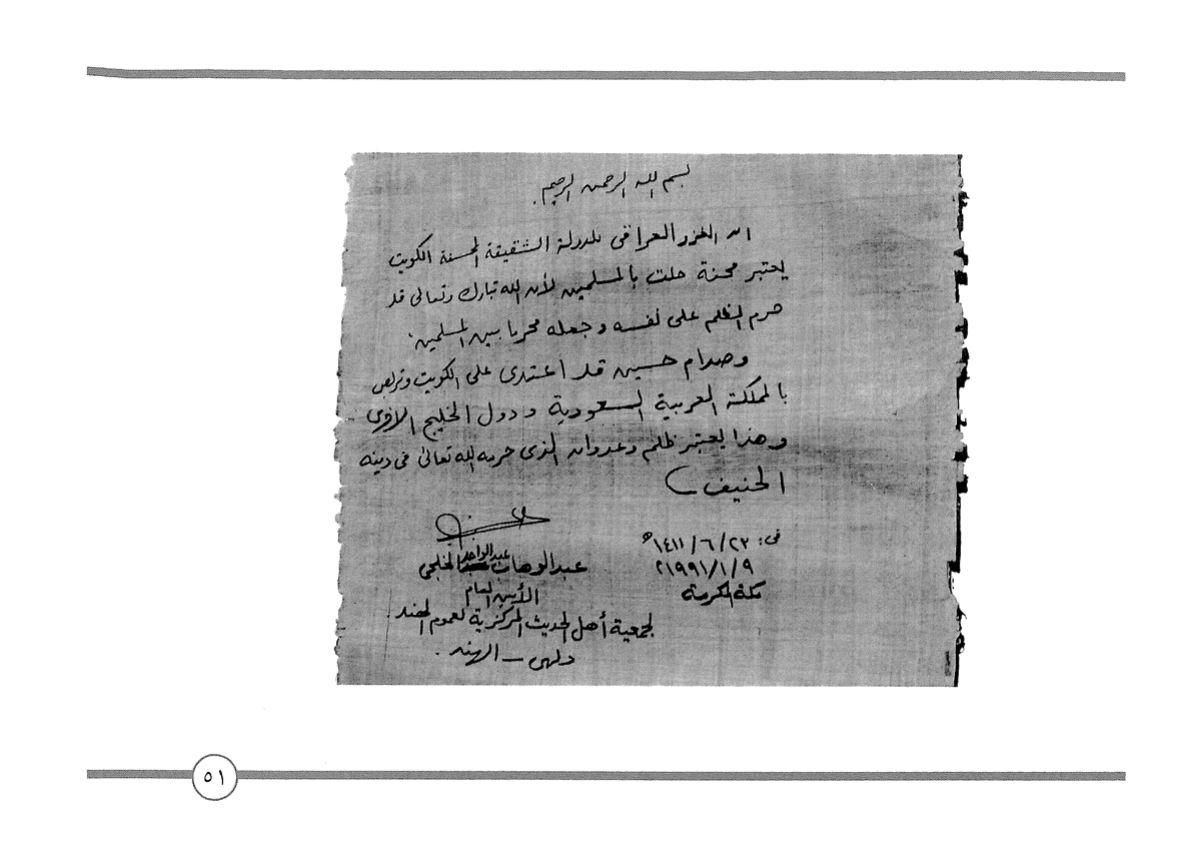 بسم الله الرحمن الرحيم.
ان الغزو العراقي للدولة الشقيقة المحسنة الكويت
يعتبر محنة حلت بالمسلمين لأن الله تبارك وتعالى قد
حرم الظلم على نفسه وجعله محرما بين المسلمين.
وصدام حسين قد اعتدى على الكويت وتربص
بالمملكة العربية السعودية ودول الخليج الاخرى
وهذا يعتبر ظلم وعدوان الذى حرمه الله تعالى فى دينه
الحنيف
فى: ٢٣/٦/١٤١١ه
٩/١/١٩٩١م
مكة المكرمة
عبدالوهاب عبدالواحد الخلجي
الأمين العام
لجمعية أهل الحديث المركزية لعموم الهند
دلهى – الهند.
٥١